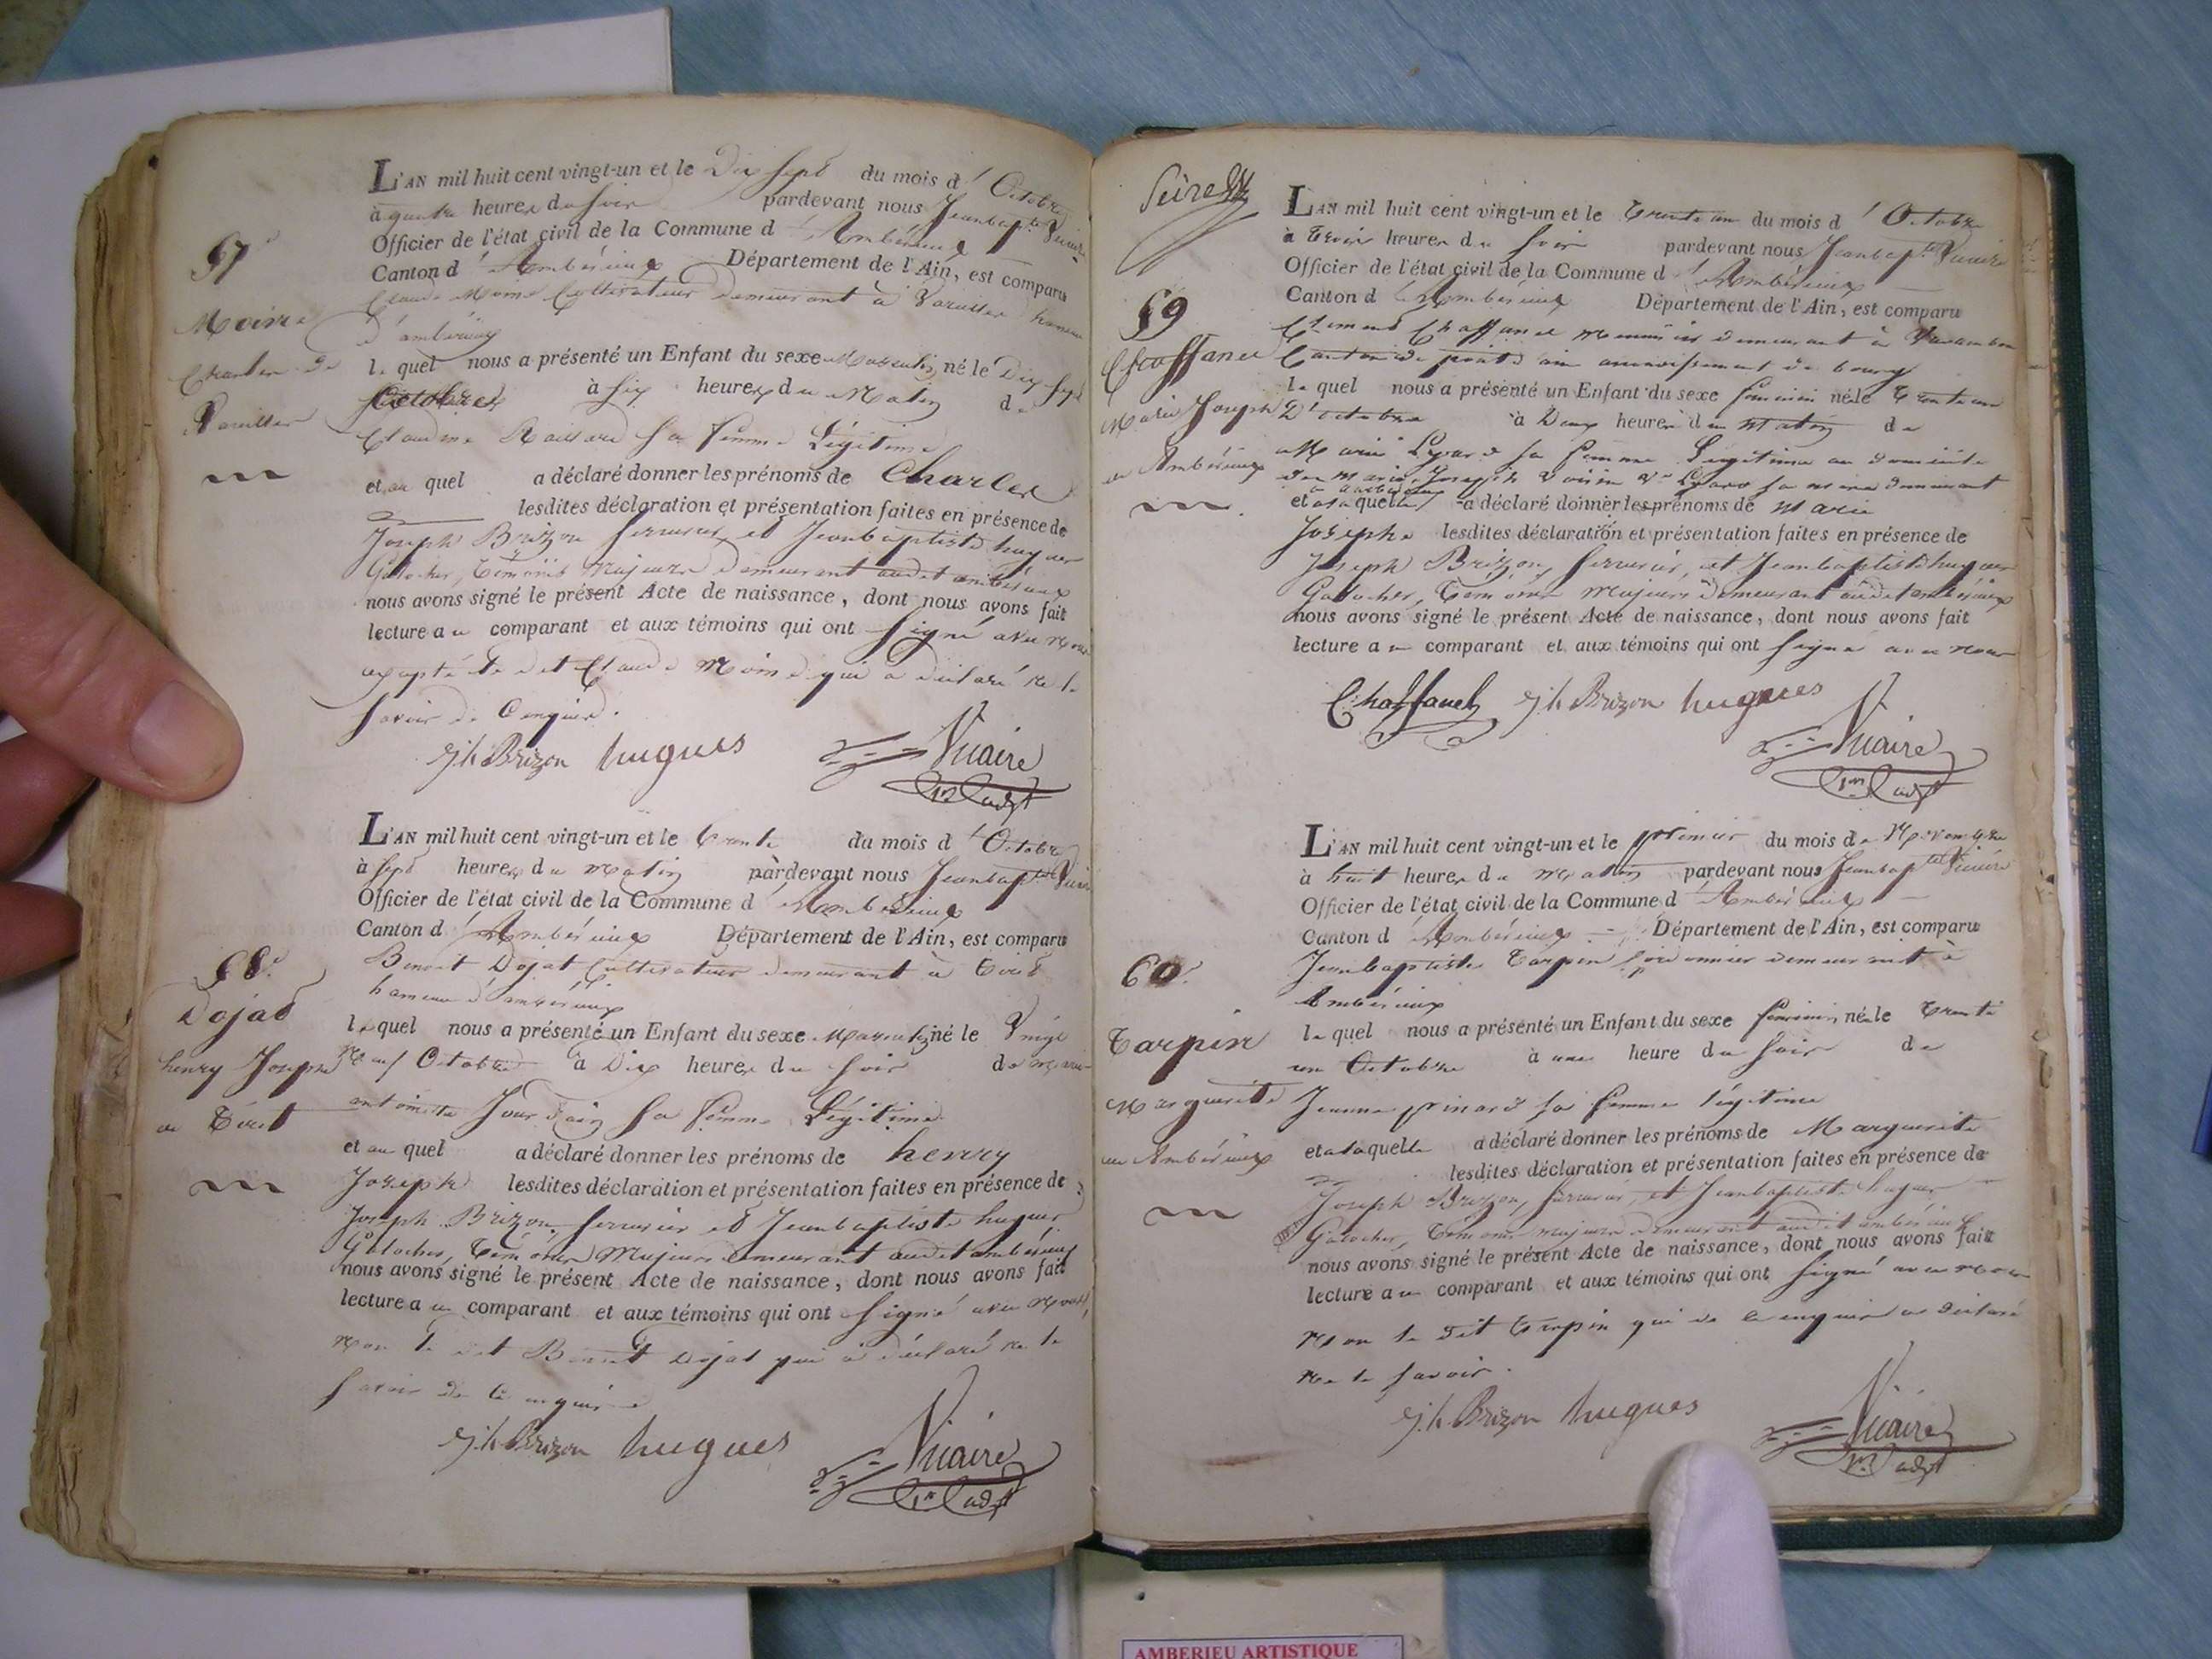 57e
Moine
Charles de
Vareilles
L'AN mil huit cent vingt-un et le Dix sept du mois d' Octobre
à quatre heures du soir pardevant nous Jeanbapte Vicaire
Officier de l'état civil de la Commune d' Ambérieux
Canton d' Ambérieux Département de l'Ain, est comparu
Claude Moine Cultivateur demeurant à Vareilles hameau
d'ambérieux
le quel nous a présenté un Enfant du sexe Masculin né le Dix sept
Octobre à six heures du Matin de
Claudine sa femme Légitime
et au quel a déclaré donner les prénoms de Charles
lesdites déclaration et présentation faites en présence de
Joseph Brizon serrurier et Jeanbaptiste hugues
Galocher, témoins Majeurs demeurant audit ambérieux
nous avons signé le présent Acte de naissance, dont nous avons fait
lecture au comparant et aux témoins qui ont signé avec nous
excepté le dit Claude Moine qui a déclaré ne le
savoir de ce enquis.
Jh Brizon hugues Vicaire
1er adjt
58e
Dojat
henry Joseph
au Tiret
L'AN mil huit cent vingt-un et le trente du mois d' Octobre
à sept heures du matin pardevant nous Jeanbapte Vicaire
Officier de l'état civil de la Commune d' Ambérieux
Canton d' Ambérieux Département de l'Ain, est comparu
Benoit Dojat Cultivateur demeurant à Tiret
hameau d'ambérieux
le quel nous a présenté un Enfant du sexe Masculin né le Vingt
neuf Octobre à Dix heures du soir de marie
antoinette Jourdain sa femme Légitime
et au quel a déclaré donner les prénoms de henry
Joseph lesdites déclaration et présentation faites en présence de
Joseph Brizon, serrurier et Jeanbaptiste hugues
Galocher, témoins Majeurs demeurant audit ambérieux
nous avons signé le présent Acte de naissance, dont nous avons fait
lecture au comparant et aux témoins qui ont signé avec nous,
non le dit Benoit Dojat qui a déclaré ne le
savoir de ce enquis
Jh Brizon hugues Vicaire
1er adjt
59
Chaffanel
Marie Joseph
à Ambérieux
L'AN mil huit cent vingt-un et le trente un du mois d' Octobre
à trois heures du soir pardevant nous Jeanbapte Vicaire
Officier de l'état civil de la Commune d' Ambérieux
Canton d' Ambérieux Département de l'Ain, est comparu
Clément Chaffanel menuisier demeurant à Varambon
Canton de pont d'ain arrondissement de bourg
le quel nous a présenté un Enfant du sexe féminin née le trente un
d'octobre à Deux heures du matin de
Marie sa femme Légitime au domicile
de Marie Joseph Voisin ve sa mere demeurant
à ambérieux
et à laquelle a déclaré donner les prénoms de Marie
Josephe lesdites déclaration et présentation faites en présence de
Joseph Brizon, serrurier, et Jeanbaptiste hugues
Galocher, témoins Majeurs demeurant audit ambérieux
nous avons signé le présent Acte de naissance, dont nous avons fait
lecture au comparant et aux témoins qui ont signé avec nous
Chaffanel Jh Brizon hugues
Vicaire
1er adjt
60e
Tarpin
Marguerite
à Ambérieux
L'AN mil huit cent vingt-un et le premier du mois de Novembre
à huit heures du matin pardevant nous Jeanbapte Vicaire
Officier de l'état civil de la Commune d' Ambérieux
Canton d' Ambérieux Département de l'Ain, est comparu
Jeanbaptiste Tarpin cordonnier demeurant à
Ambérieux
le quel nous a présenté un Enfant du sexe féminin née le trente
un Octobre à une heure du soir de
Jeanne pinard sa femme légitime
et à laquelle a déclaré donner les prénoms de Marguerite
lesdites déclaration et présentation faites en présence de
Joseph Brizon, serrurier, et Jeanbaptiste hugues
Galocher, témoins majeurs demeurant audit ambérieux
nous avons signé le présent Acte de naissance, dont nous avons fait
lecture au comparant et aux témoins qui ont signé avec nous
non le dit Tarpin qui de ce enquis a déclaré
ne le savoir.
Jh Brizon hugues Vicaire
1er adjt
AMBERIEU ARTISTIQUE